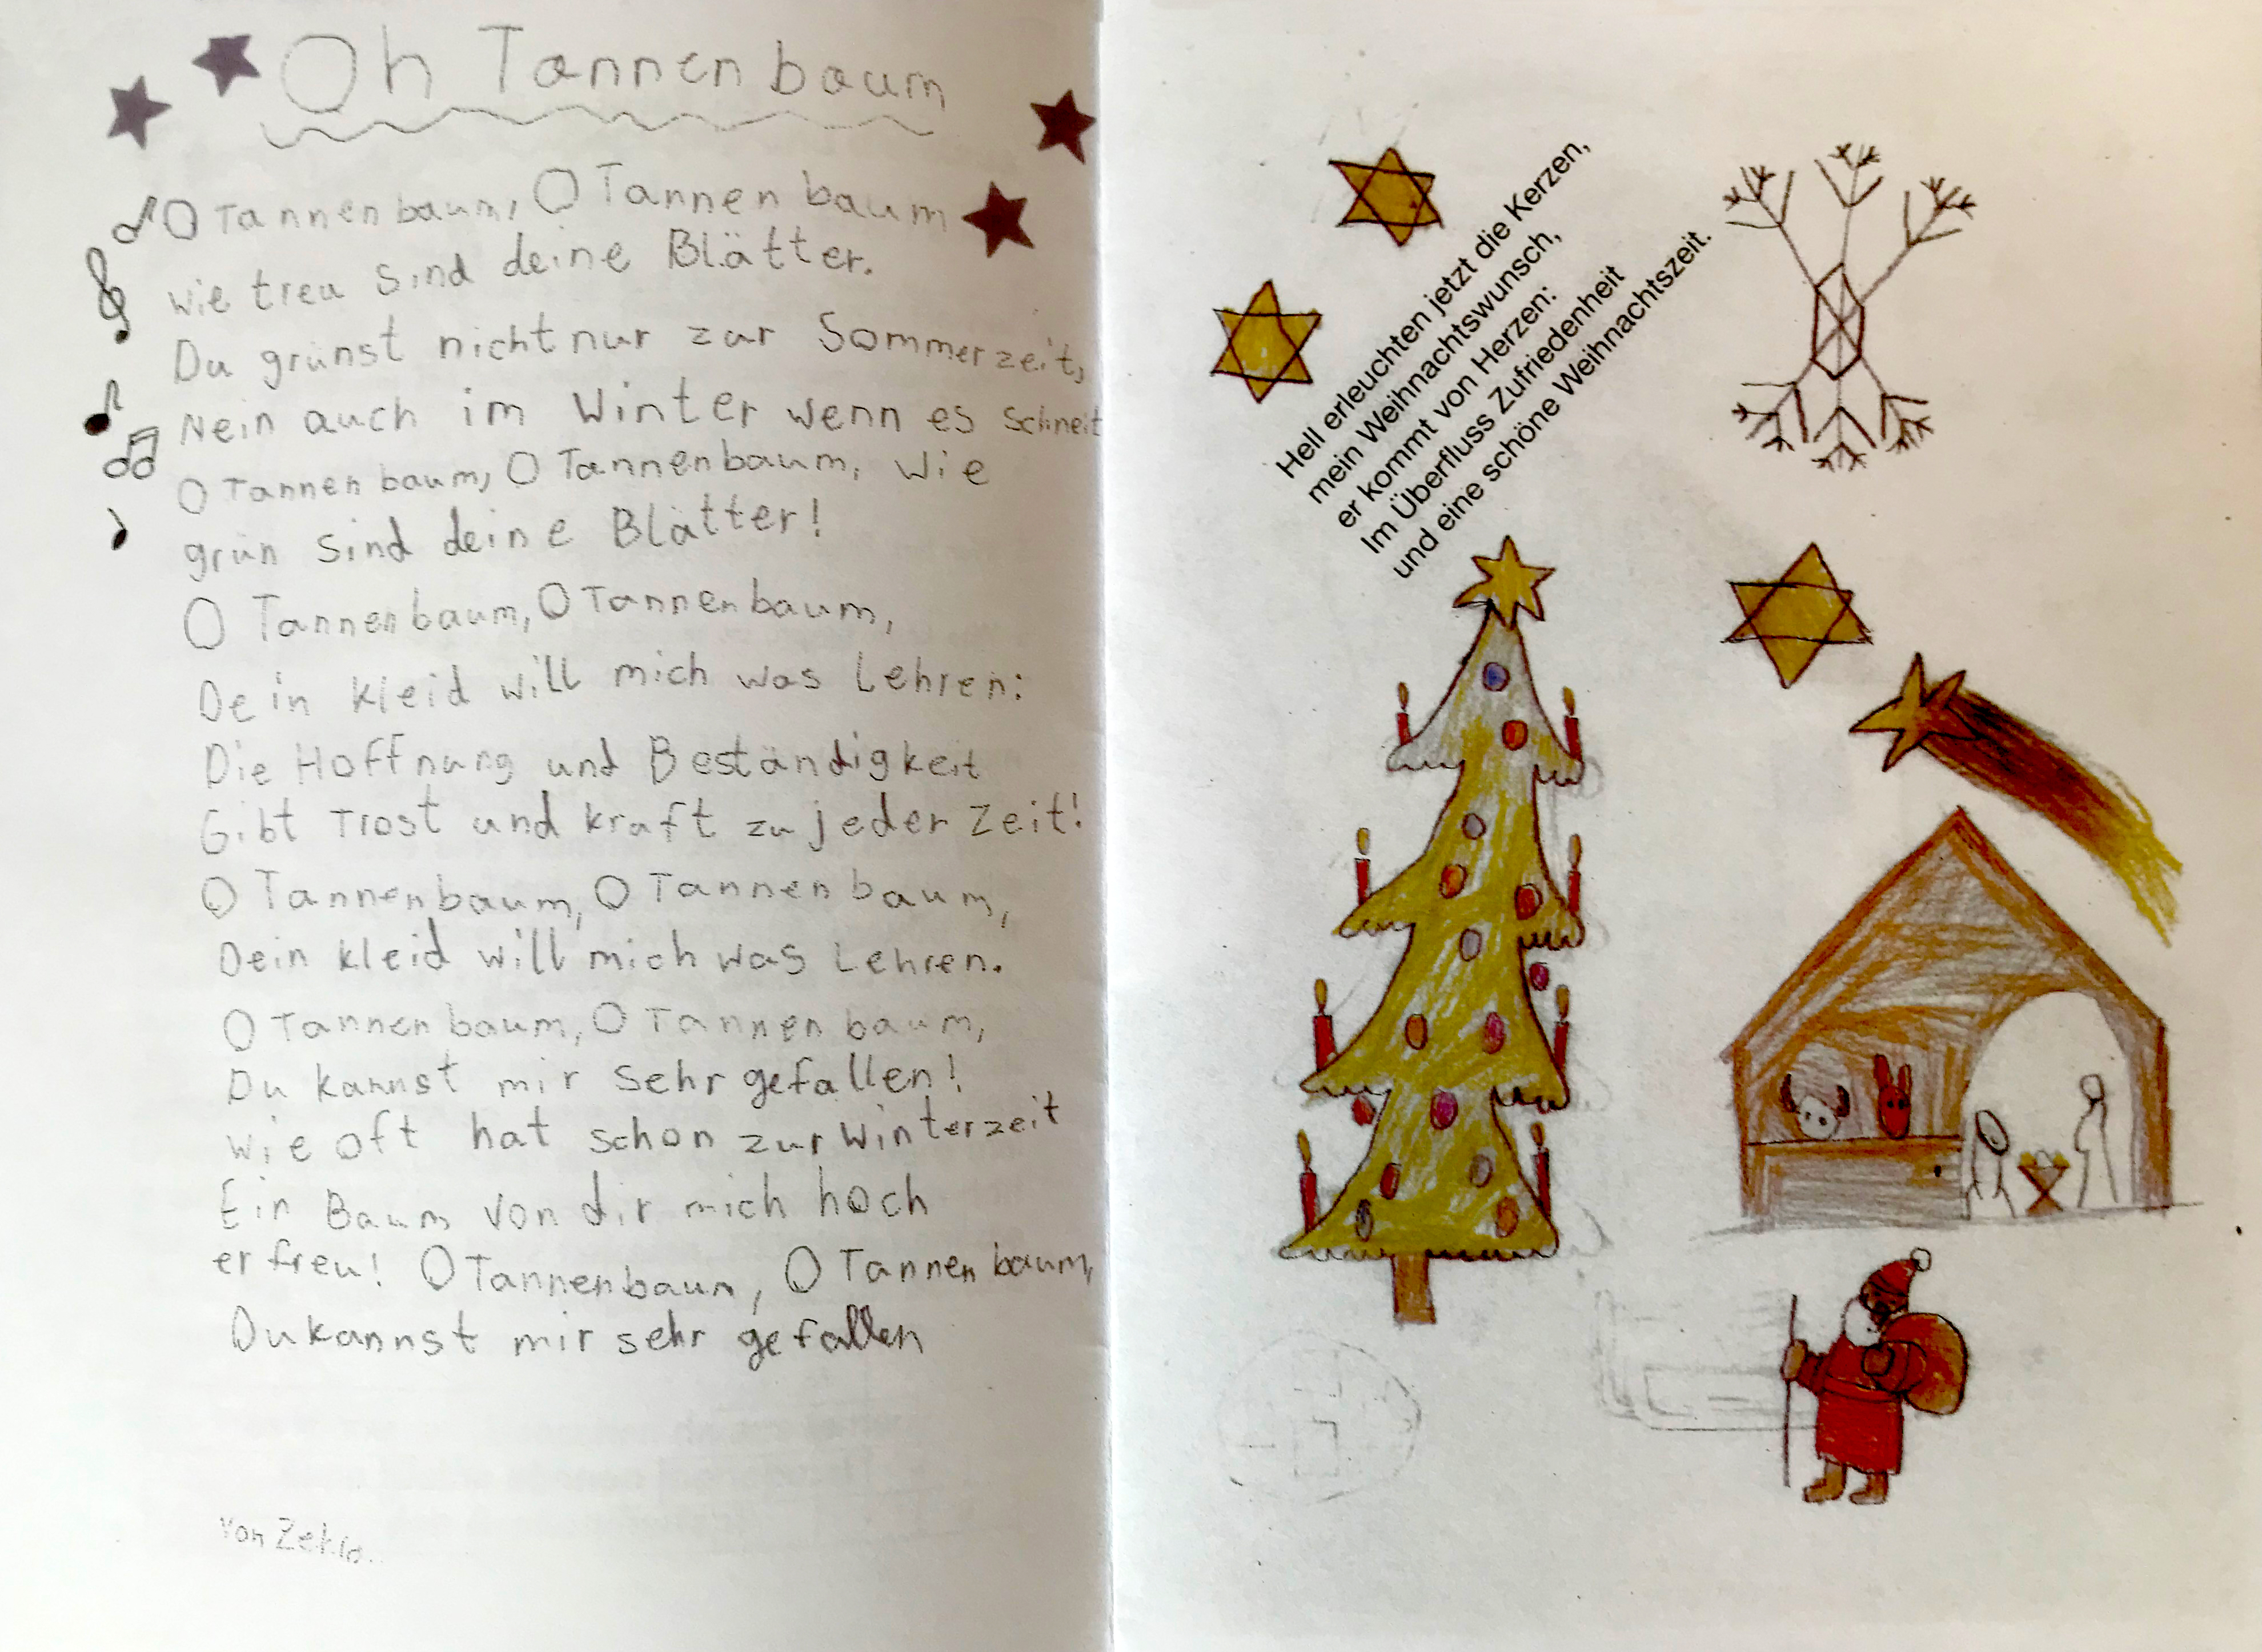 Oh Tannenbaum
O Tannenbaum, O Tannenbaum
wie treu sind deine Blätter.
Du grünst nicht nur zur Sommerzeit,
Nein auch im Winter wenn es schneit
O Tannenbaum, O Tannenbaum, wie
grün sind deine Blätter!
O Tannenbaum, O Tannenbaum,
Dein Kleid will mich was Lehren:
Die Hoffnung und Beständigkeit
Gibt Trost und kraft zu jeder Zeit!
O Tannenbaum, O Tannenbaum,
Dein Kleid will mich was Lehren.
O Tannenbaum, O Tannenbaum,
Du kannst mir sehr gefallen!
Wie oft hat schon zur Winterzeit
Ein Baum von dir mich hoch
erfreu! O Tannenbaum, O Tannenbaum,
Du kannst mir sehr gefallen
Von
Hell erleuchten jetzt die Kerzen,
mein Weihnachtswunsch,
er kommt von Herzen:
Im Überfluss Zufriedenheit
und eine schöne Weihnachtszeit.